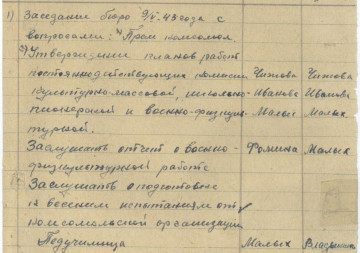 1) Заседание бюро 9/V-43 года с
вопросами: 1) Прием комсомол.
2) Утверждение планов работ
постояннодействующих комиссий Чижова Чижова
культурно-массовой, школьно- Иванова Иванова
пионерской и военно-физкуль- Малых Малых
турной.
Заслушать отчет о военно- Фомина Малых
физкультурной работе
Заслушать о подготовке
к весенним испытаниям от
комсомольской организации
Педучилища Малых